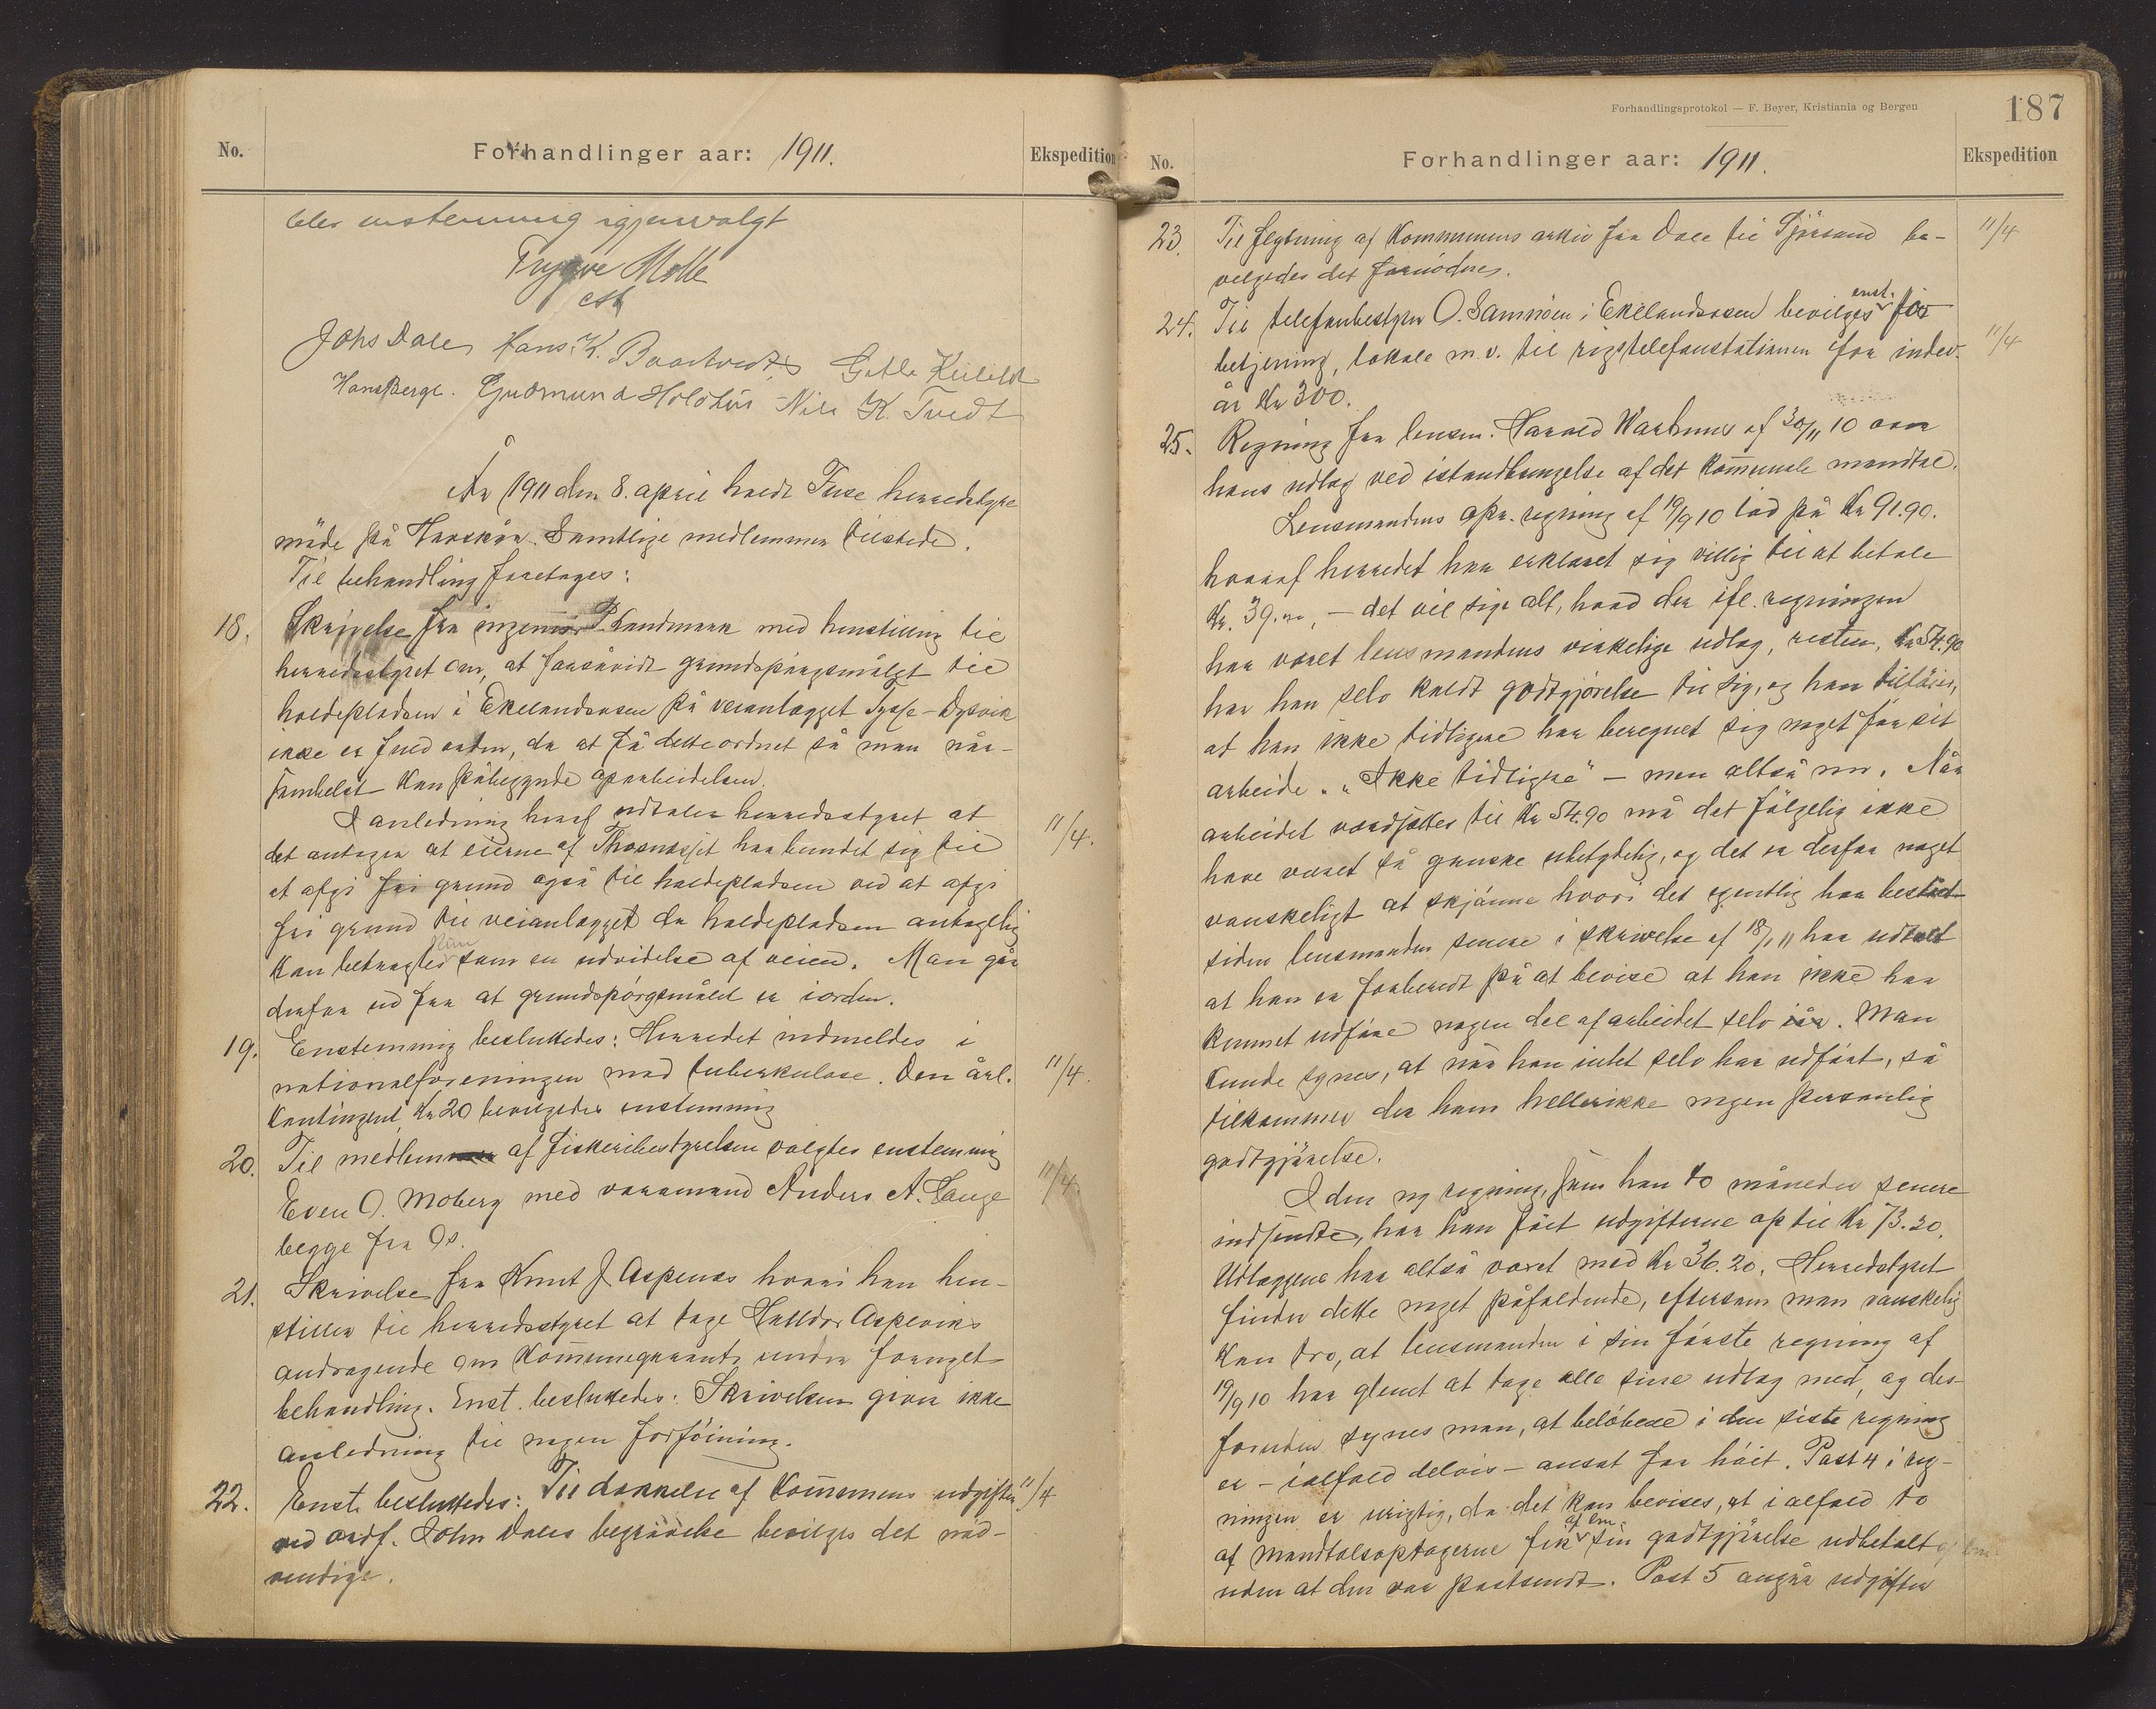 No.
Forhandlinger aar: 1911.
Ekspedition
blev enstemmig igjenvalgt
Trygve Molle
Johs Dale Hans K. Baartvedt Gitle Kileld
Hans Berge. Gudmund Holdhus Nils K. Tvedt
År 1911 den 8. april holdt Fuse herredstyre
möde på Havskår. Samtlige medlemmer tilstede.
Til behandling foretages:
18. Skrivelse fra ingeniör P. Landmark med henstilling til
herredsstyret om, at forsåvidt grundspörgsmålet til
holdepladsen i Ekelandsosen på veianlægget Sysse-Dysvik
ikke er fuld orden, da at få dette ordnet så man når-
somhelst kan påbegynde oparbeidelsen.
I anledning heraf udtaler herredsstyret at
det antager at eierne af har bundet sig til
at afgi fri grund også til holdepladsen ved at afgi
fri grund til veianlægget da holdepladsen antagelig
kan betragtes kun som en udvidelse af veien. Man går
derfor ud fra at grundspörgsmålet er iorden.
11/4.
19. Enstemmig besluttedes: Herredet indmeldes i
nationalforeningen mod tuberkulose. Den årl.
kontingent, Kr 20 bevilgedes enstemmig
11/4.
20. Til medlem af fiskeribestyrelsen valgtes enstemmig
Even O. Moberg med varamand Anders A. Lauge
begge fra Os.
11/4
21. Skrivelse fra Knut J. Aspenes hvori han hen-
stiller til herredsstyret at tage Halldor Aspeviks
andragende om Kommunegaranti under fornyet
behandling. Enst. besluttedes: Skrivelsen giver ikke
anledning til nogen forföining.
22. Enst. besluttedes: Til dækkelse af Kommunens udgifter
ved ordf. John Dales begravelse bevilges det nöd-
vendige.
11/4
Forhandlingsprotokol — F. Beyer, Kristiania og Bergen
187
No.
Forhandlinger aar: 1911.
Ekspedition
23. Til flytning af Kommunens arkiv fra Dale til Sjösand be-
vilgedes det fornödne.
11/4
24. Til telefonbestyrer O. Samnöen i Ekelandsosen bevilges enst. for
betjening, lokale m.v. til rigstelefonstationen for indev.
år Kr 300.
11/4
25. Regning fra lensm. Harald Warhuus af 30/11 10 over
hans udlæg ved istandbringelse af det kommunale mandtal.
Lensmandens opr. regning af 19/9 10 lød på Kr 91.90.
hvoraf herredet har erklæret sig villig til at betale
Kr. 39.00, — det vil sige alt, hvad der ifl. regningen
har været lensmandens virkelige udlæg, resten, Kr 54.90
har han selv kaldt godtgjörelse til sig, og han tilföier,
at han ikke tidligere har beregnet sig noget for sit
arbeide. "Ikke tidligere" — men altså nu. Når
arbeidet værdsættes til Kr 54.90 må det fölgelig ikke
have været så ganske ubetydelig, og det er derfor noget
vanskeligt at skjönne hvori det egentlig har bestået
siden lensmanden senere i skrivelse af 18/1 11 har udtalt
at han er forberedt på at bevise at han ikke har
kunnet udföre nogen del af arbeidet selv iår. Man
kunde synes, at når han intet selv har udfört, så
tilkommer der ham hellerikke nogen personlig
godtgjörelse.
I den ny regning, som han to måneder senere
indsendte, har han fået udgifterne op til Kr 73.20.
Udlæggene har altså været med Kr 36.20. Herredstyret
finder dette noget påfaldende, eftersom man vanskelig
kan tro, at lensmanden i sin förste regning af
19/9 10 har glemt at tage alle sine udlæg med, og des-
foruden synes man, at belöbene i den siste regning
er – ialfald delvis – ansat for höit. Post 4 i reg-
ningen er urigtig, da det kan bevises, at ialfald to
af mandtalsoptagerne fik af lm. sin godtgjörelse udbetalt
uden at den var postsendt. Post 5 angår udgifter